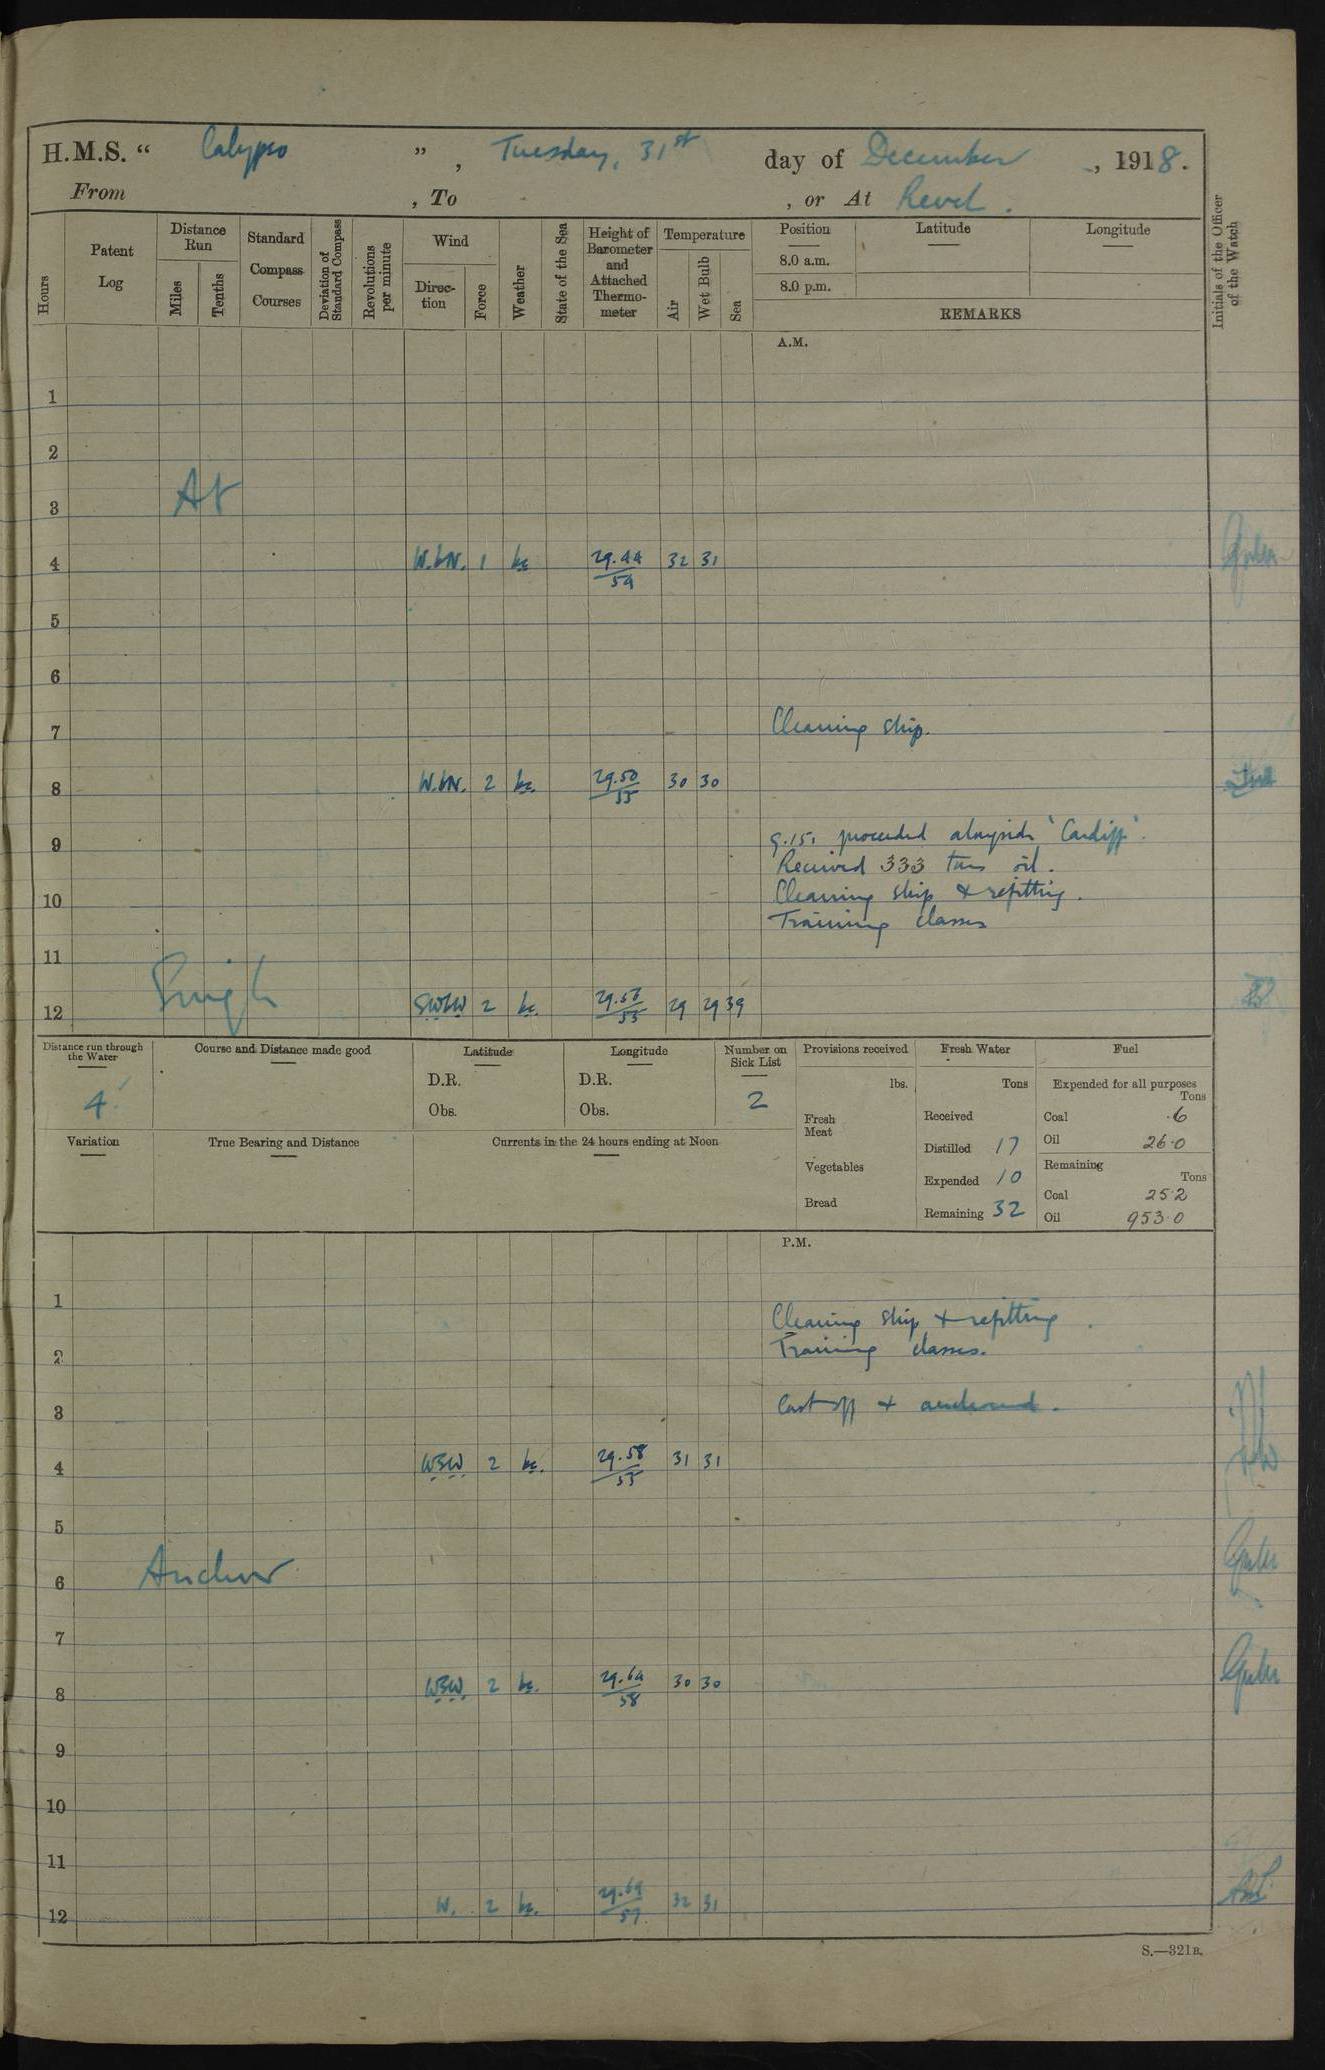 H.M.S. “ Calypso ” , Tuesday, 31st day of December , 1918.
From , To , or At Revel.
Hours
Patent Log
Distance Run
Miles
Tenths
Standard Compass Courses
Deviation of Standard Compass
Revolutions per minute
Wind
Direction
Force
Weather
State of the Sea
Height of Barometer and Attached Thermometer
Temperature
Air
Wet Bulb
Sea
Position
8.0 a.m.
8.0 p.m.
Latitude
Longitude
REMARKS
Initials of the Officer of the Watch
A.M.
1
2
3 At
4 W.bN. 1 bc 29.44/54 32 31
5
6
7 Cleaning ship.
8 W.bN. 2 bc. 29.50/55 30 30
9 9.15, proceeded alongside 'Cardiff'.
Received 333 tons oil.
10 Cleaning ship & refitting.
Training classes
11
12 Single SWbW 2 bc. 29.56/55 29 29 39
Distance run through the Water
4'
Course and Distance made good
Latitude
D.R.
Obs.
Longitude
D.R.
Obs.
Number on Sick List
2
Provisions received
lbs.
Fresh Meat
Vegetables
Bread
Fresh Water
Tons
Received
Distilled 17
Expended 10
Remaining 32
Fuel
Expended for all purposes
Tons
Coal .6
Oil 26.0
Remaining
Tons
Coal 25.2
Oil 953.0
Variation
True Bearing and Distance
Currents in the 24 hours ending at Noon
P.M.
1 Cleaning ship & refitting.
2 Training classes.
3 Cast off & anchored.
4 WSW 2 bc. 29.58/55 31 31
5
6 Anchor
7
8 WSW. 2 bc. 29.64/58 30 30
9
10
11
12 W. 2 bc. 29.69/57 32 31
S.—321B.